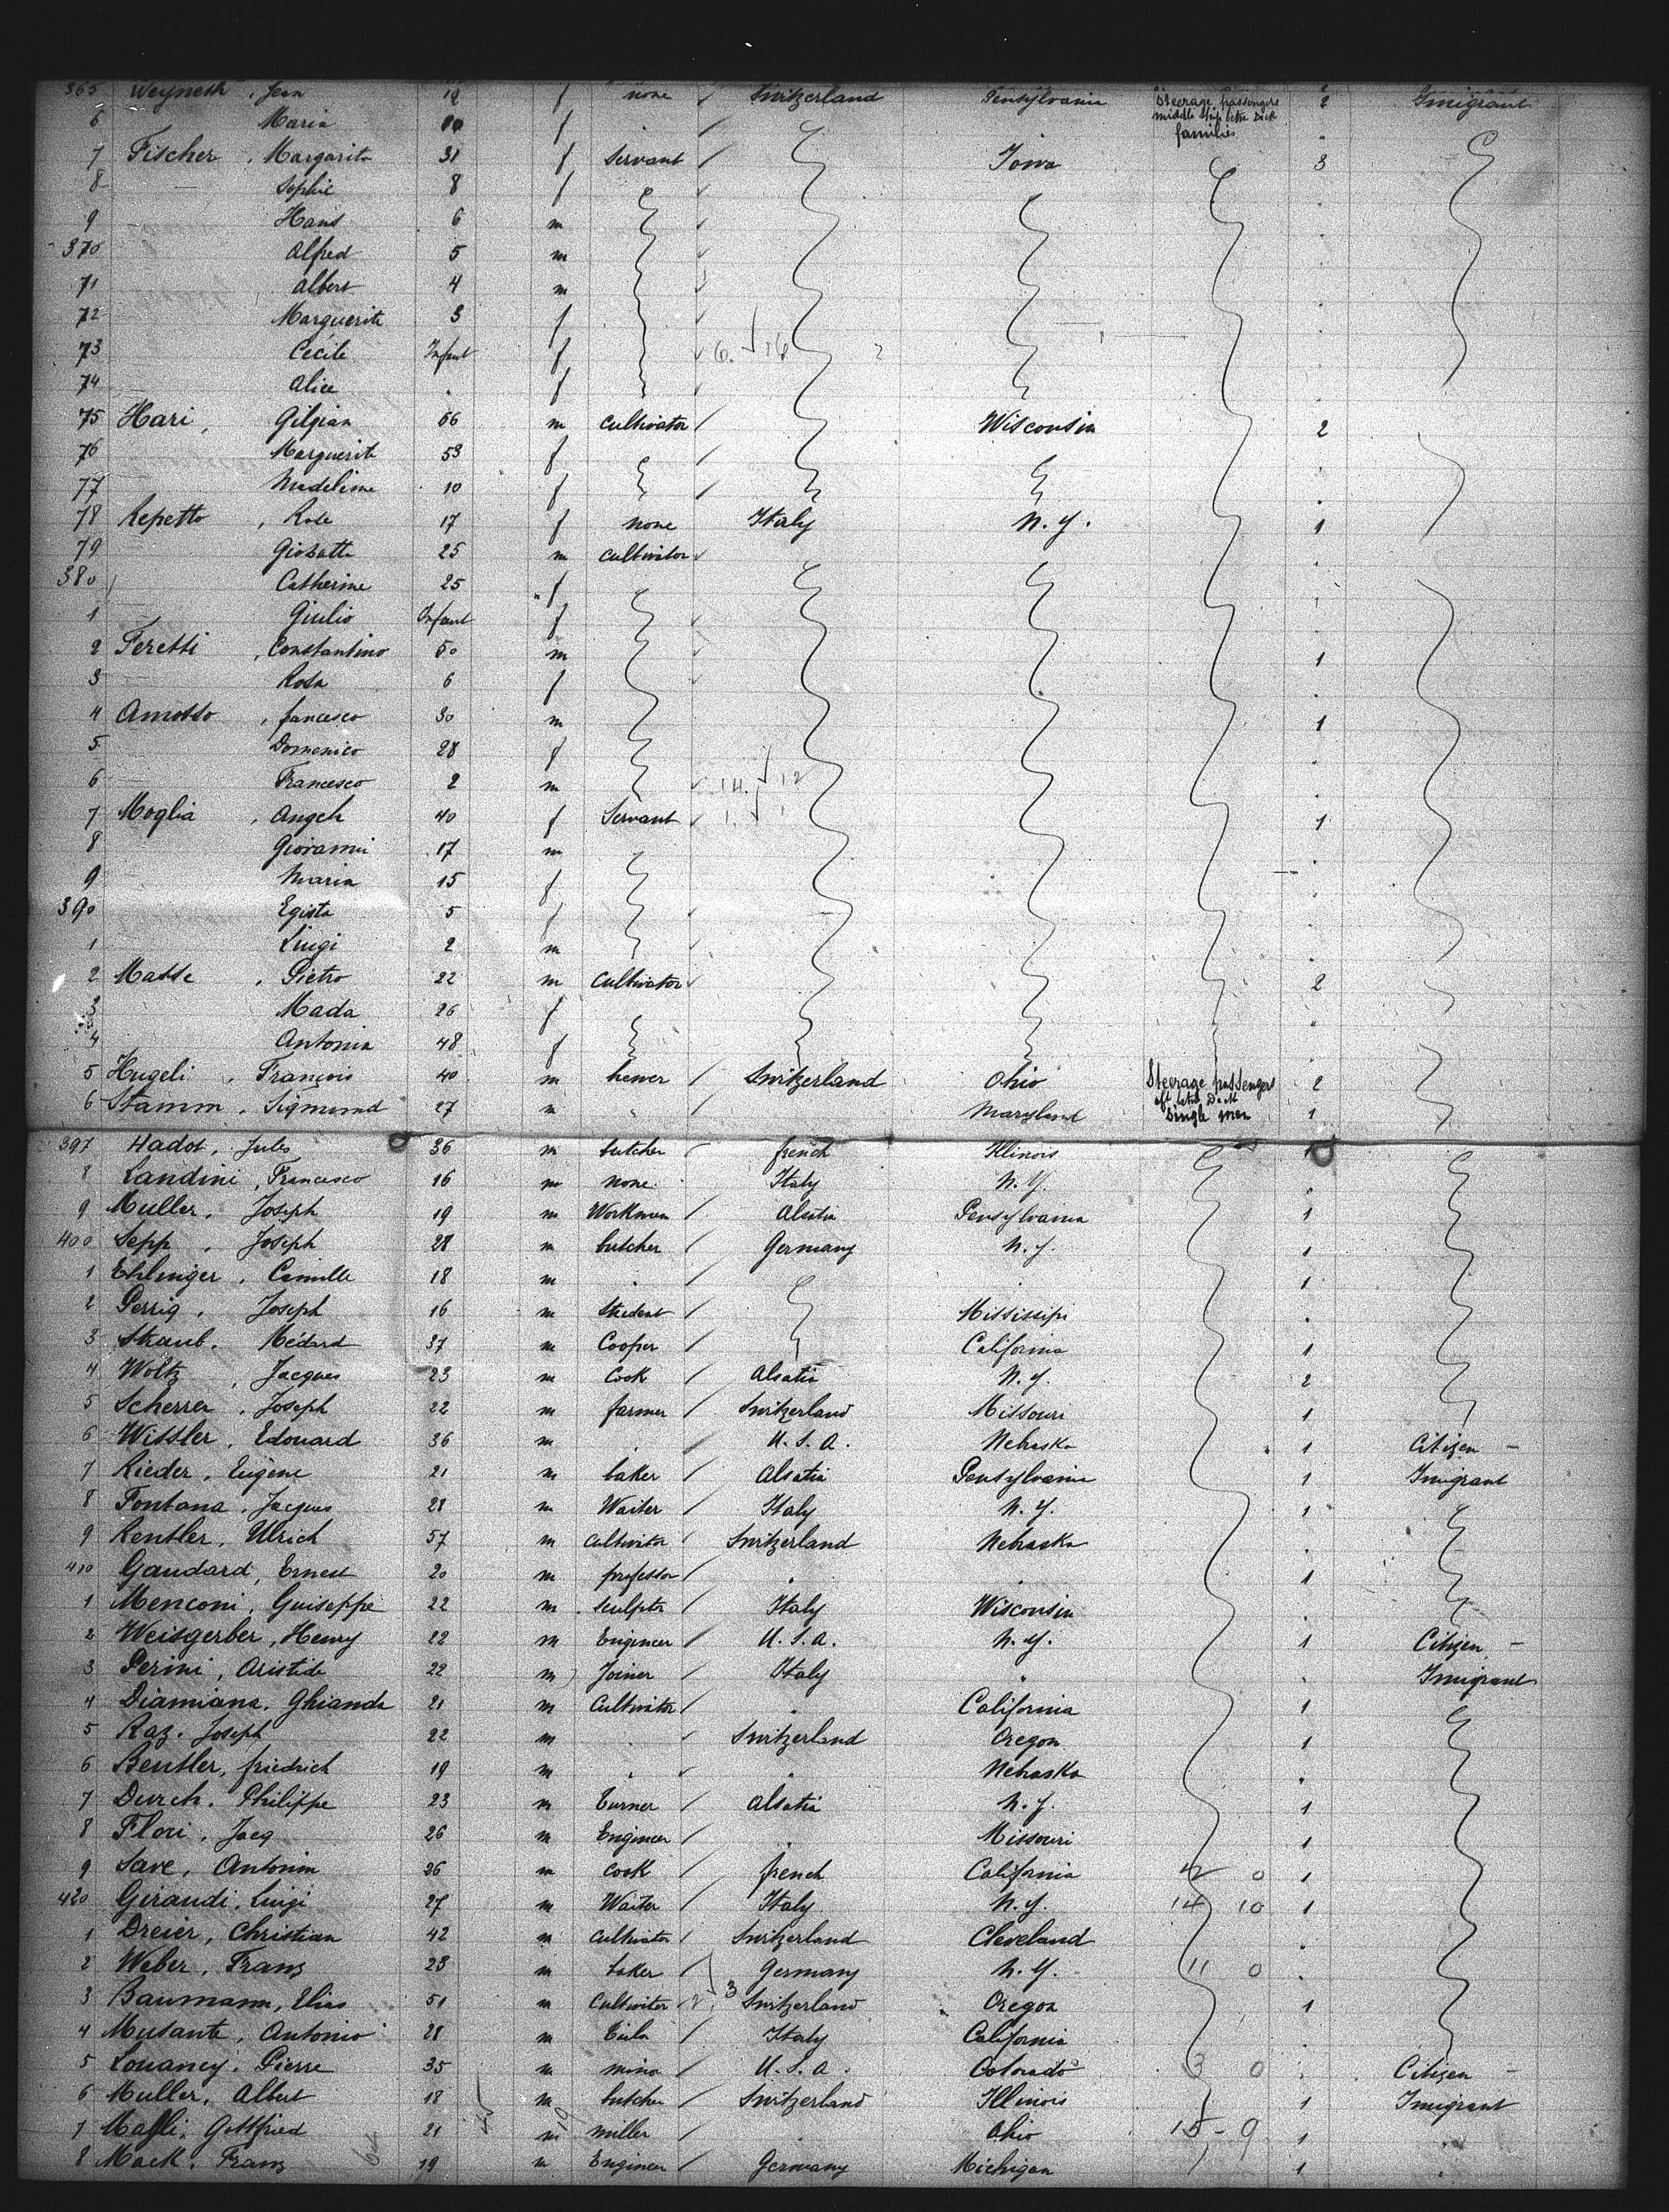 365 Weyneth, Jean 12 f none Switzerland Pensylvania Steerage passengers 2 Imigrant
middle Ship betw Deck
6 Maria 10 f families
7 Fischer, Margarita 31 f Servant Iowa 3
8 Sophie 8 f
9 Hans 6 m
370 Alfred 5 m
71 Albert 4 m
72 Marguerite 3 f
73 Cécile Infant f 6. 16
74 Alice f
75 Hari, Gilgian 56 m Cultivator Wisconsin 2
76 Marguerite 53 f
77 Madeleine 10 f
78 Repetto, Rose 17 f none Italy N.Y. 1
79 Giobatta 25 m cultivator
380 Catherine 25 f
1 Giulio Infant f
2 Feretti, Constantino 50 m 1
3 Rosa 6 f
4 Amosso, francesco 30 m 1
5 Domenico 28 f
6 Francesco 2 m 14. 12
7 Moglia, Angela 40 f Servant 1. 1 1
8 Giovanni 17 m
9 Maria 15 f
390 Egista 5 f
1 Luigi 2 m
2 Masse, Pietro 22 m Cultivator 2
3 Mada 26 f
4 Antonia 48 f
5 Hugeli, François 40 m hewer Switzerland Ohio Steerage passengers 2
aft betw Deck
6 Stamm, Sigmund 27 m " Maryland Single men 1
397 Hadot, Jules 36 m butcher french Illinois 1
8 Landini, Francesco 16 m none Italy N.Y.
9 Muller, Joseph 19 m Workman Alsatia Pensylvania 1
400 Sepp, Joseph 28 m butcher Germany N.Y. 1
1 Ehlinger, Camille 18 m 1
2 Perrig, Joseph 16 m Student Mississipi
3 Straub, Médard 37 m Cooper California 1
4 Woltz, Jacques 23 m Cook Alsatia N.Y. 2
5 Scherrer, Joseph 22 m farmer Switzerland Missouri 1
6 Wissler, Edouard 36 m U.S.A. Nebraska 1 Citizen -
7 Rieder, Eugène 21 m baker Alsatia Pensylvania 1 Imigrant
8 Fontana, Jacques 28 m Waiter Italy N.Y. 1
9 Kentler, Ulrich 57 m Cultivator Switzerland Nebraska
410 Gaudard, Ernest 20 m professor 1
1 Menconi, Guiseppe 22 m sculptor Italy Wisconsin
2 Weisgerber, Henry 22 m Engineer U.S.A. N.Y. 1 Citizen -
3 Perini, Aristide 22 m Joiner Italy " Imigrant
4 Diamiana, Ghianda 21 m Cultivator California 1
5 Raz, Joseph 22 m Switzerland Oregon 1
6 Beutler, friedrich 19 m Nebraska
7 Durch, Philippe 23 m Turner Alsatia N.Y. 1
8 Flori, Jacq 26 m Engineer Missouri 1
9 Save, Antonin 26 m cook french California 0 1
420 Giraudi, Luigi 27 m Waiter Italy N.Y. 14 10 1
1 Dreier, Christian 42 m Cultivator Switzerland Cleveland
2 Weber, Franz 23 m baker Germany N.Y. 11 0
3 Baumann, Elias 51 m Cultivator 3 Switzerland Oregon 1
4 Musante, Antonio 28 m Italy California
5 Louancy, Pierre 35 m U.S.A. Colorado 3 0 Citizen -
6 Muller, Albert 18 m butcher Switzerland Illinois 1 Imigrant
7 Maffli, Gottfried 21 m miller Ohio 15 - 9 1
8 Mack, Franz 19 m Engineer Germany Michigan 1